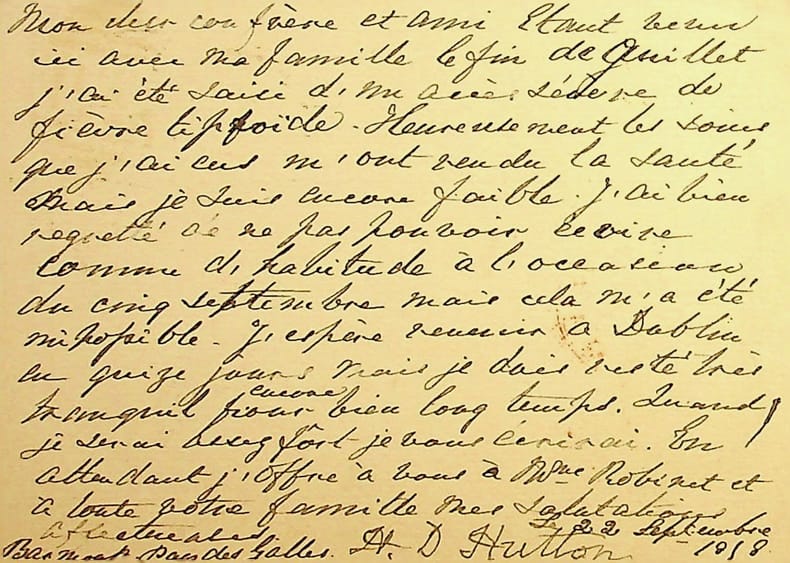 Mon cher confrère et ami Etant venu
ici avec ma famille le fin de Guillet
j'ai été saisi d'un accès sévère de
fièvre tipfoide. Heureusement les soins
que j'ai eus m'ont rendu la santé
mais je suis encore faible. J'ai bien
regretté de ne pas pouvoir écrire
comme d'habitude à l'occasion
du cinq septembre mais cela m'a été
impossible. J'espère revenir a Dublin
en quize jours mais je dois resté très
encore
tranquil pour bien long temps. Quand
je serai assez fort je vous écrirai. En
attendant j'offre à vous à Mme Robinet et
à toute votre famille mes salutations
affectueuses
Le 22 Septembre
Barmouth Pays des Galles. H. D Hutton 1918